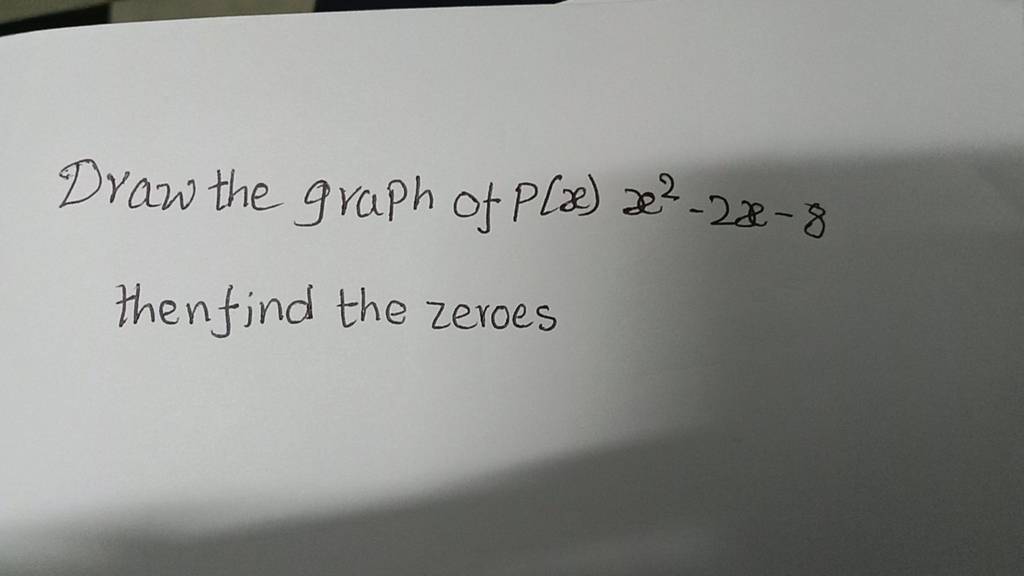 Draw the graph of P(x) x² - 2x - 8
then find the zeroes